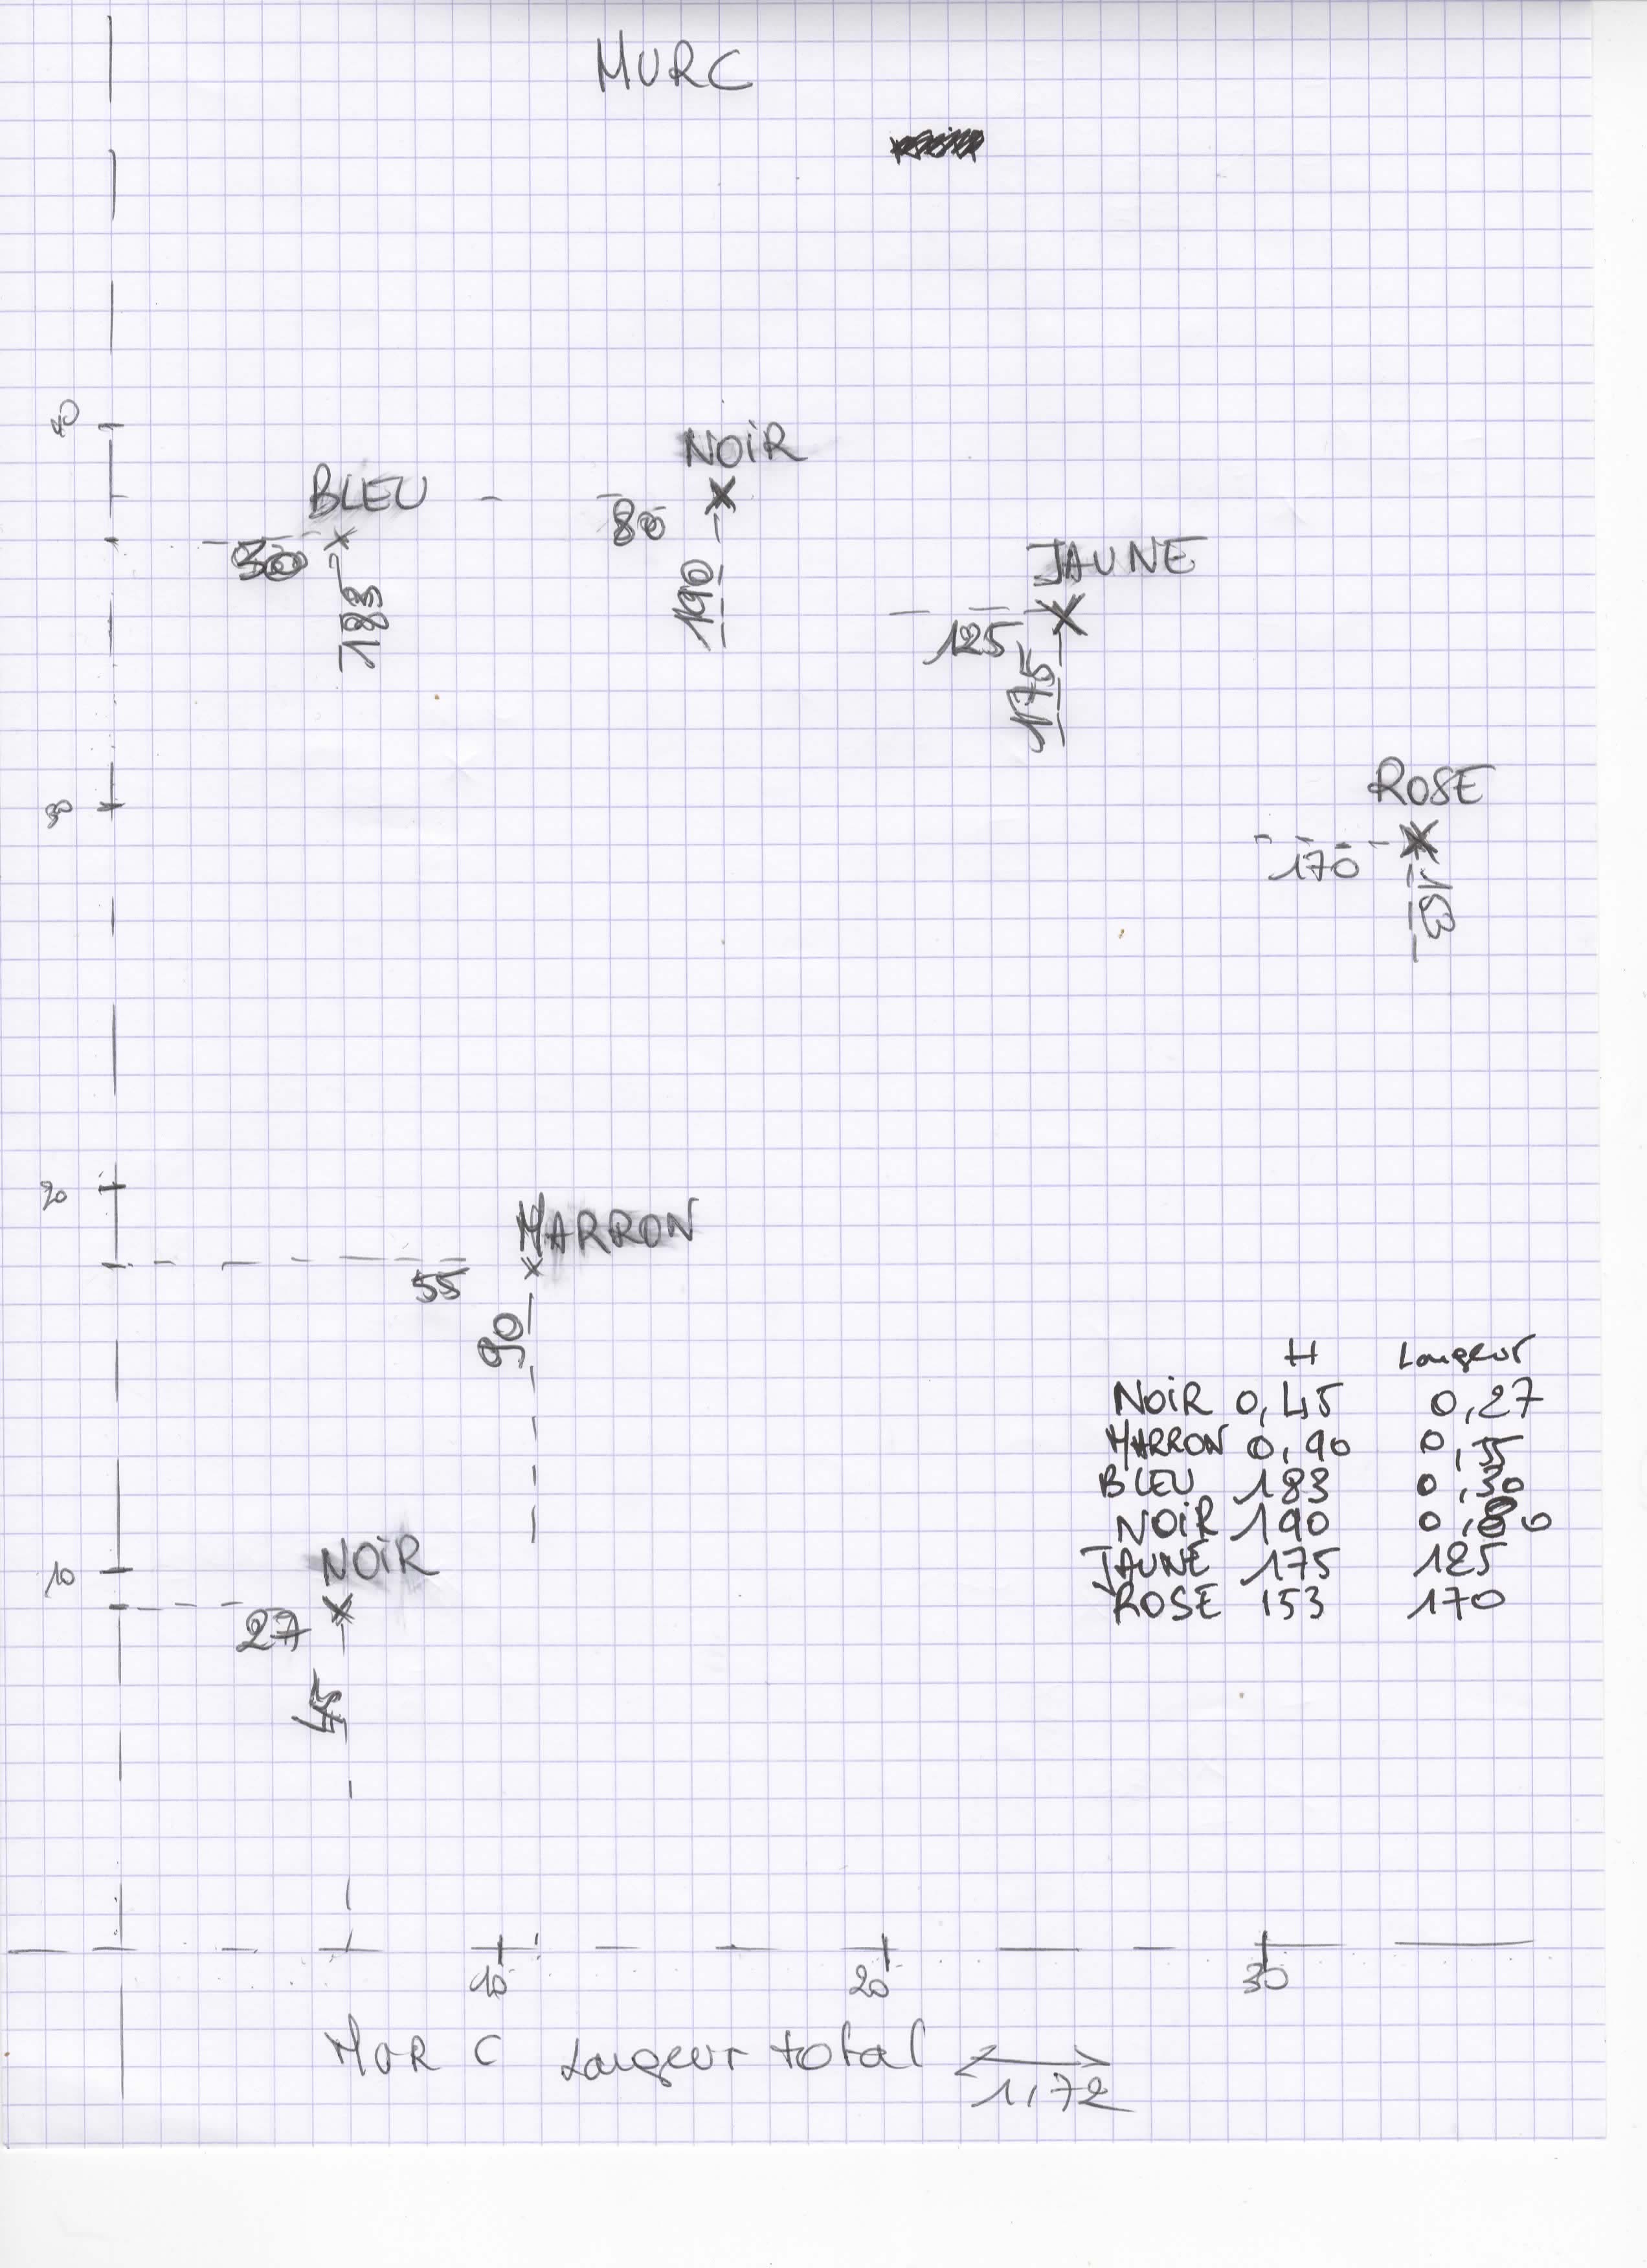 MUR C
40
NOIR
BLEU
80
30
190
183
JAUNE
125
175
ROSE
30
170
153
20
MARRON
55
90
H Longeur
NOIR 0,45 0,27
MARRON 0,90 0,55
BLEU 183 0,30
NOIR 190 0,80
JAUNE 175 125
ROSE 153 170
NOIR
10
27
45
10 20 30
MUR C Longeur total
1,72